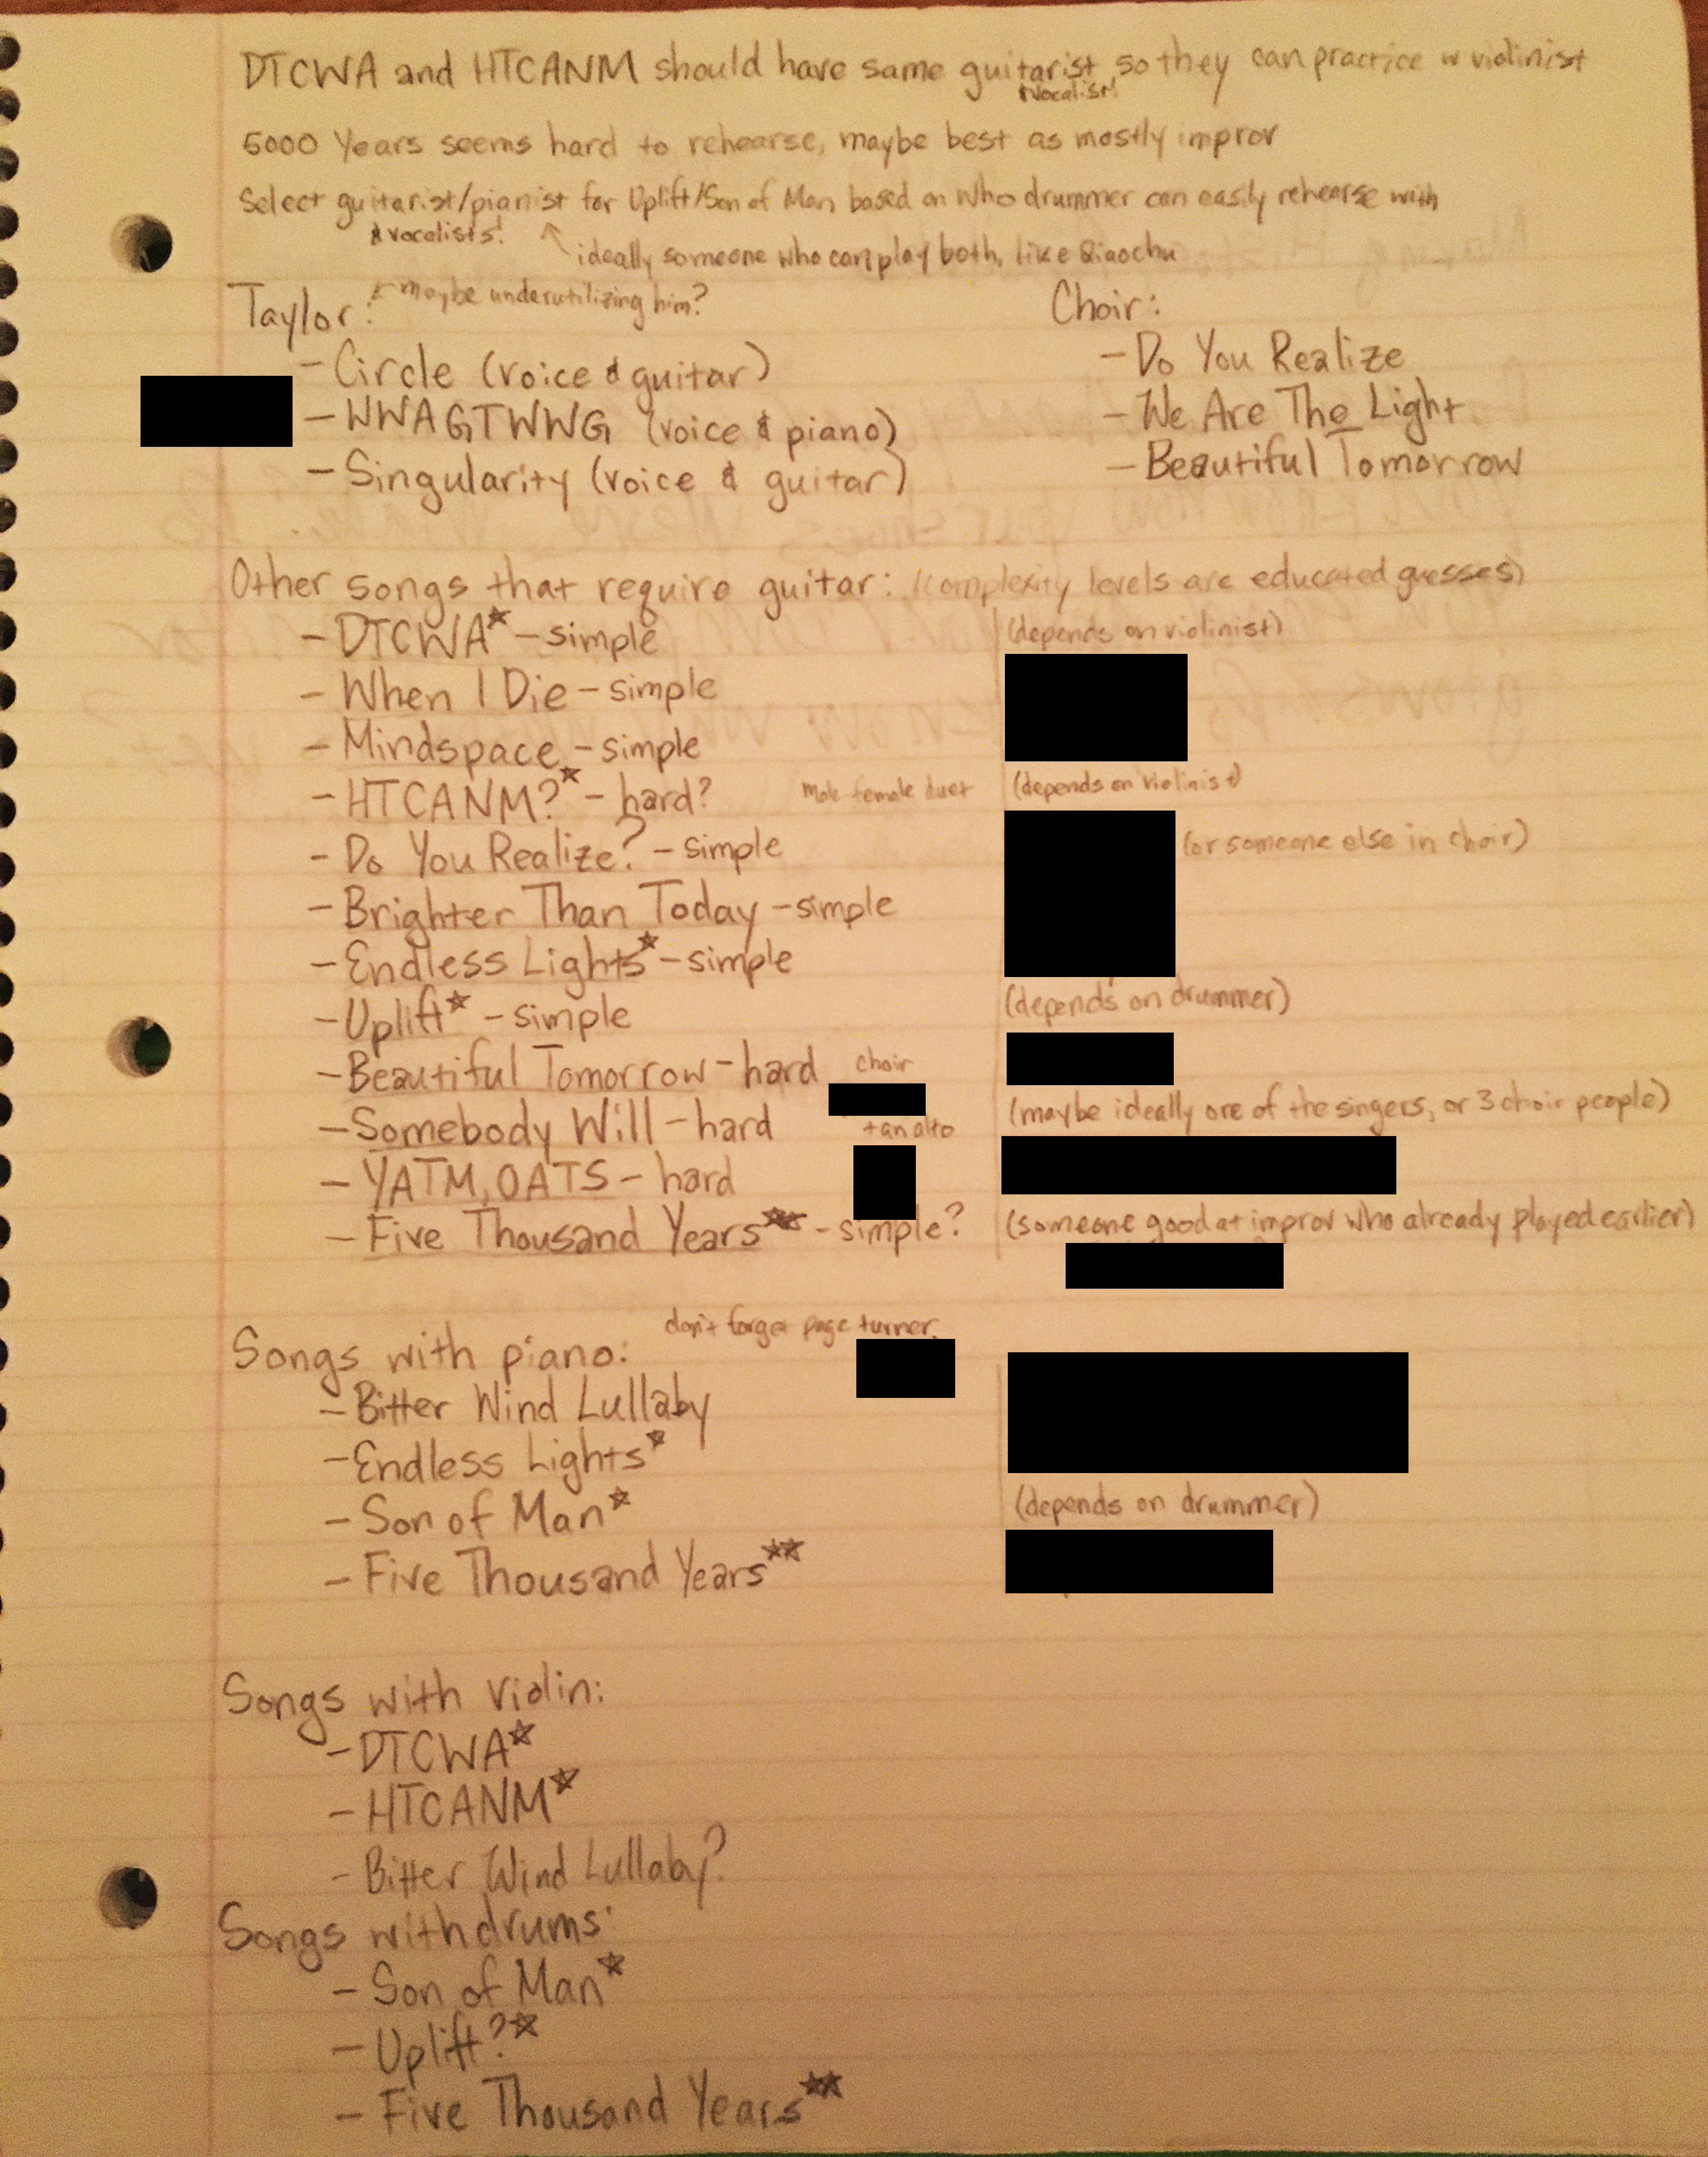 DTCWA and HTCANM should have same guitarist, so they can practice w violinist
& vocalist!
5000 Years seems hard to rehearse, maybe best as mostly improv
Select guitarist/pianist for Uplift/Son of Man based on who drummer can easily rehearse with
& vocalists!
ideally someone who can play both, like Qiaochu
Taylor: ← maybe underutilizing him?
- Circle (voice & guitar)
- WWAGTWWG (voice & piano)
- Singularity (voice & guitar)
Choir:
- Do You Realize
- We Are The Light
- Beautiful Tomorrow
Other songs that require guitar: (complexity levels are educated guesses)
- DTCWA* - simple (depends on violinist)
- When I Die - simple
- Mindspace - simple
- HTCANM?* - hard? male female duet (depends on violinist)
- Do You Realize? - simple (or someone else in choir)
- Brighter Than Today - simple
- Endless Lights* - simple
- Uplift* - simple (depends on drummer)
- Beautiful Tomorrow - hard choir
- Somebody Will - hard + an alto (maybe ideally one of the singers, or 3 choir people)
- YATM, OATS - hard
- Five Thousand Years** - simple? (someone good at improv who already played earlier)
Songs with piano: don't forget page turner,
- Bitter Wind Lullaby
- Endless Lights*
- Son of Man* (depends on drummer)
- Five Thousand Years**
Songs with violin:
- DTCWA*
- HTCANM*
- Bitter Wind Lullaby?
Songs with drums:
- Son of Man*
- Uplift?*
- Five Thousand Years**